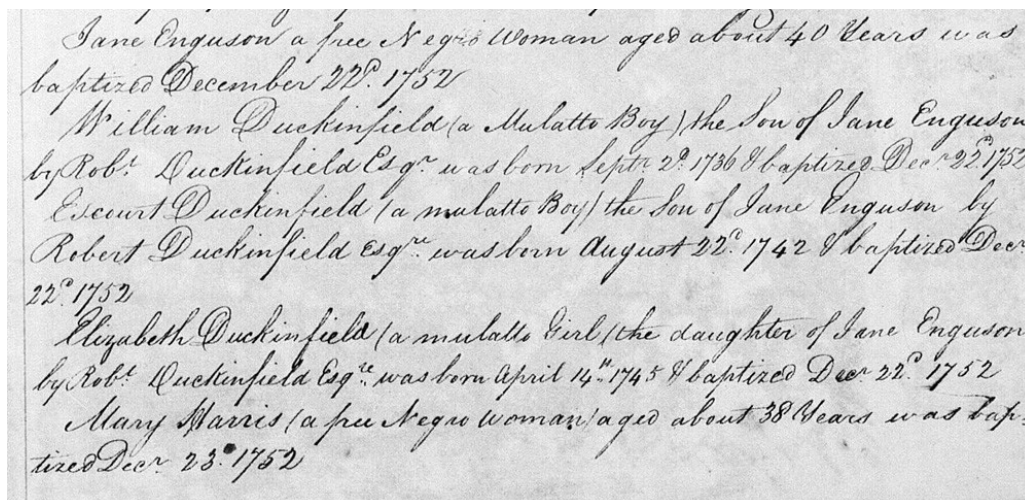 Jane Enguson a free Negro Woman aged about 40 Years was
baptized December 22d. 1752
William Duckinfield (a Mulatto Boy) the Son of Jane Enguson
by Robt. Duckinfield Esqr. was born Septr. 2d. 1736 & baptized Decr. 22d. 1752
Escourt Duckinfield (a mulatto Boy) the Son of Jane Enguson by
Robert Duckinfield Esqre. was born August 22d. 1742 & baptized Decr.
22d. 1752
Elizabeth Duckinfield (a mulatto Girl) the daughter of Jane Enguson
by Robt. Duckinfield Esqre. was born April 14th. 1745 & baptized Decr. 22d. 1752
Mary Harris (a free Negro Woman) aged about 38 Years was bap-
tized Decr. 23d. 1752